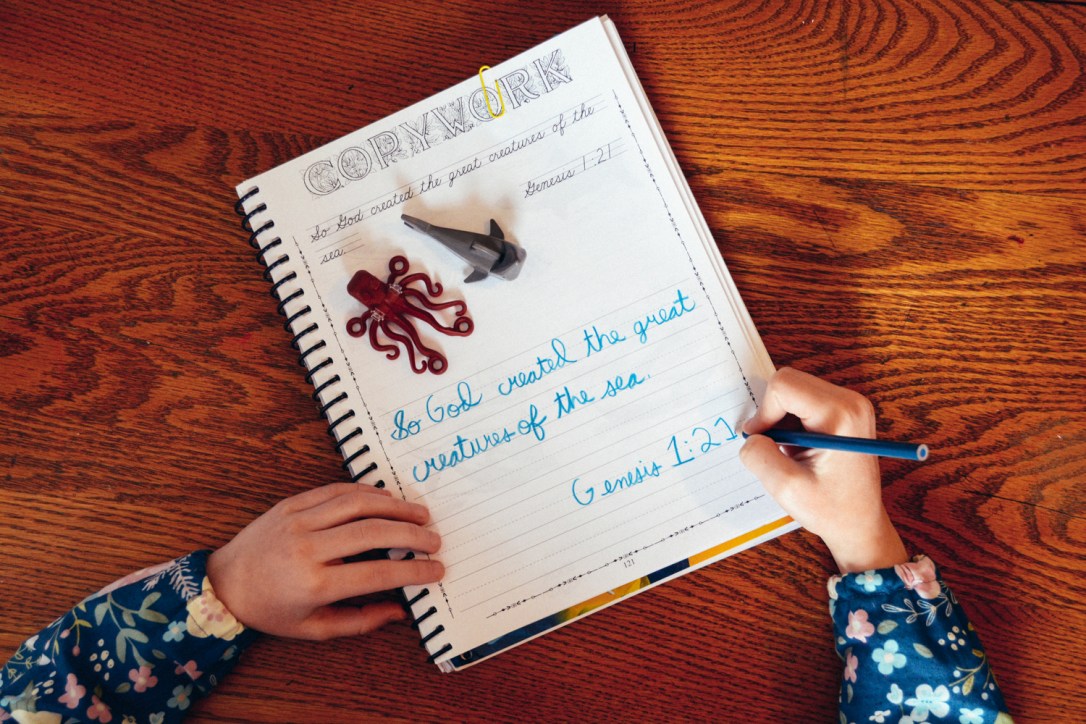 COPYWORK
So God created the great creatures of the
sea.
Genesis 1:21
So God created the great
creatures of the sea.
Genesis 1:21
121